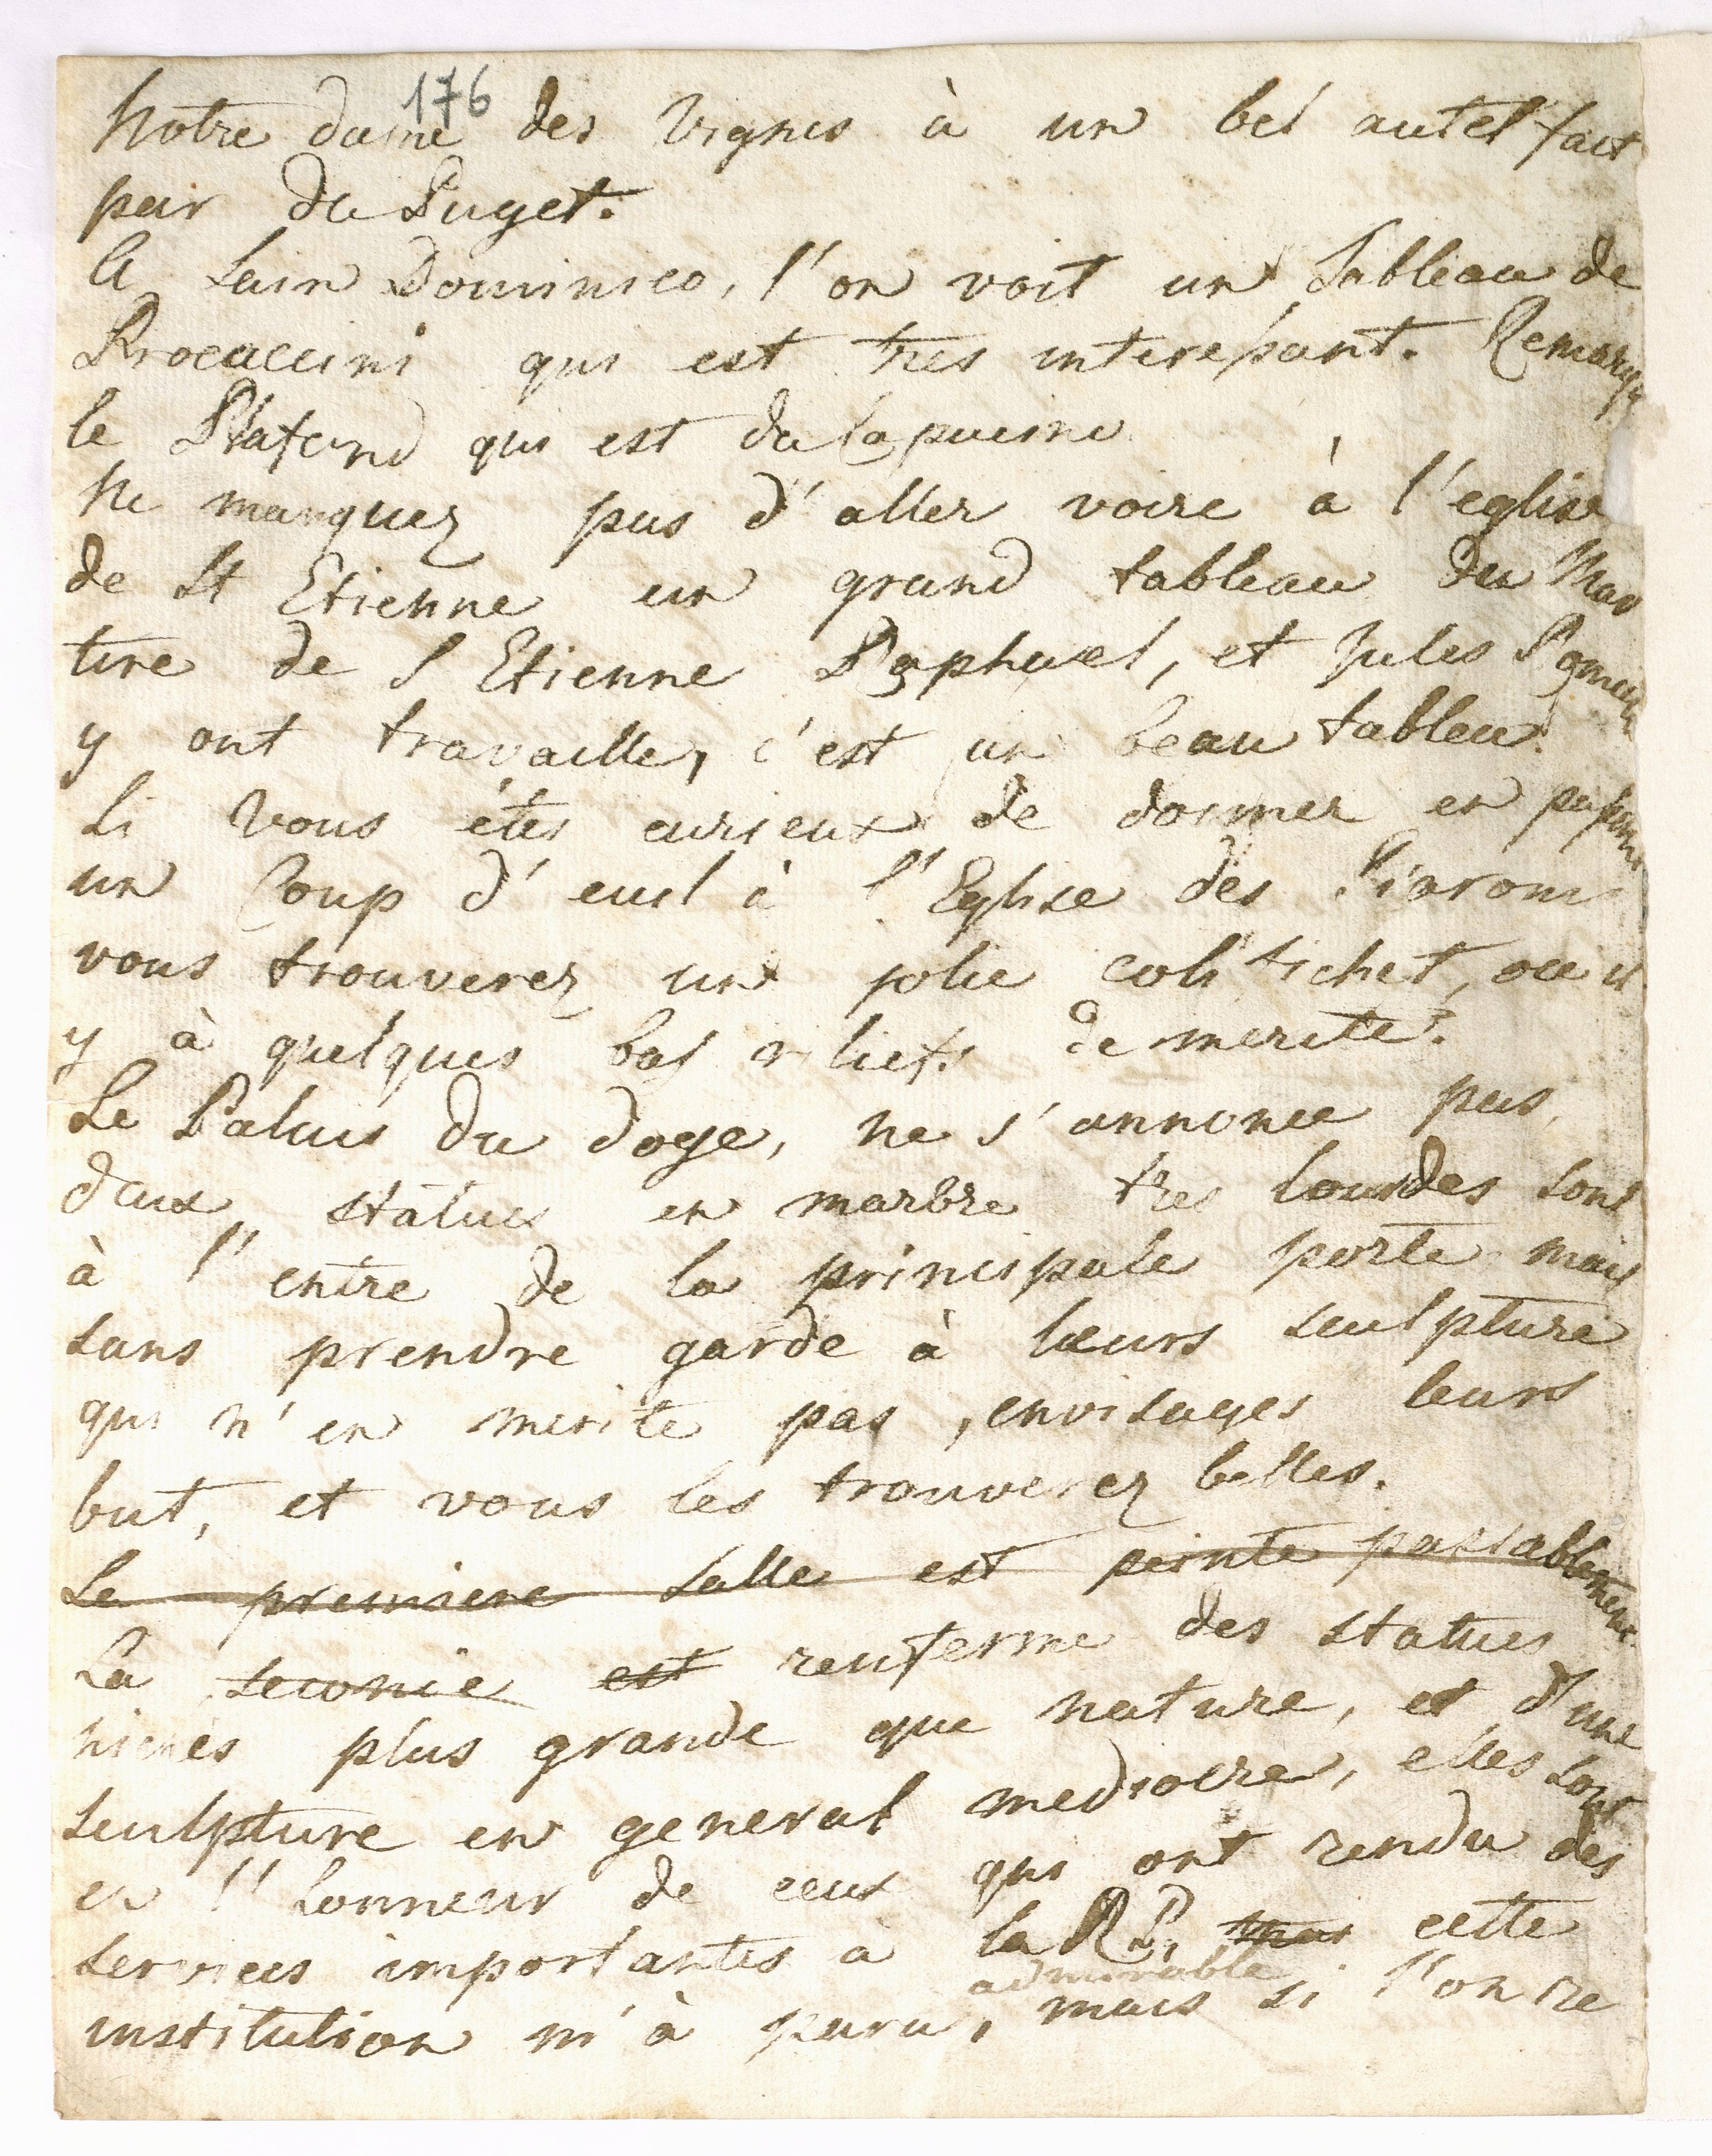 176
Notre dame des Vignes à un bel autel fait
par du Puget.
A Sain Dominico, l'on voit un Tableau de
Procaccini qui est tres interessant. Remarq
le Plafond qui est du Capucino
Ne manquez pas d'aller voire à l'eglise
de St Etienne un grand tableau du Mar
tire de S Etienne Raphael, et Jules Romain
y ont travaille, c'est un beau tableu.
Si vous étes curieux de donner en passant
un Coup d'euil à l'Eglise des
vous trouverez un jolie colifichet, ou il
y à quelques bas reliefs de merite.
Le Palais du doge, ne s'annonce pas,
deux statues en marbre tres lourdes sont
à l'entre de la principale porte mais
sans prendre garde à leurs sculpture
qui n'en merite pas, envisages leurs
but, et vous les trouverez belles.
Le premiere Salle est peinte passablement.
La seconde est renferme des statues
nichés plus grande que nature, et d'une
sculpture en general mediocre, elles sont
en l'honneur de ceux qui ont rendu des
services importantes à la R.P. mais cette
admirable
institution m'à paru, mais si l'on re